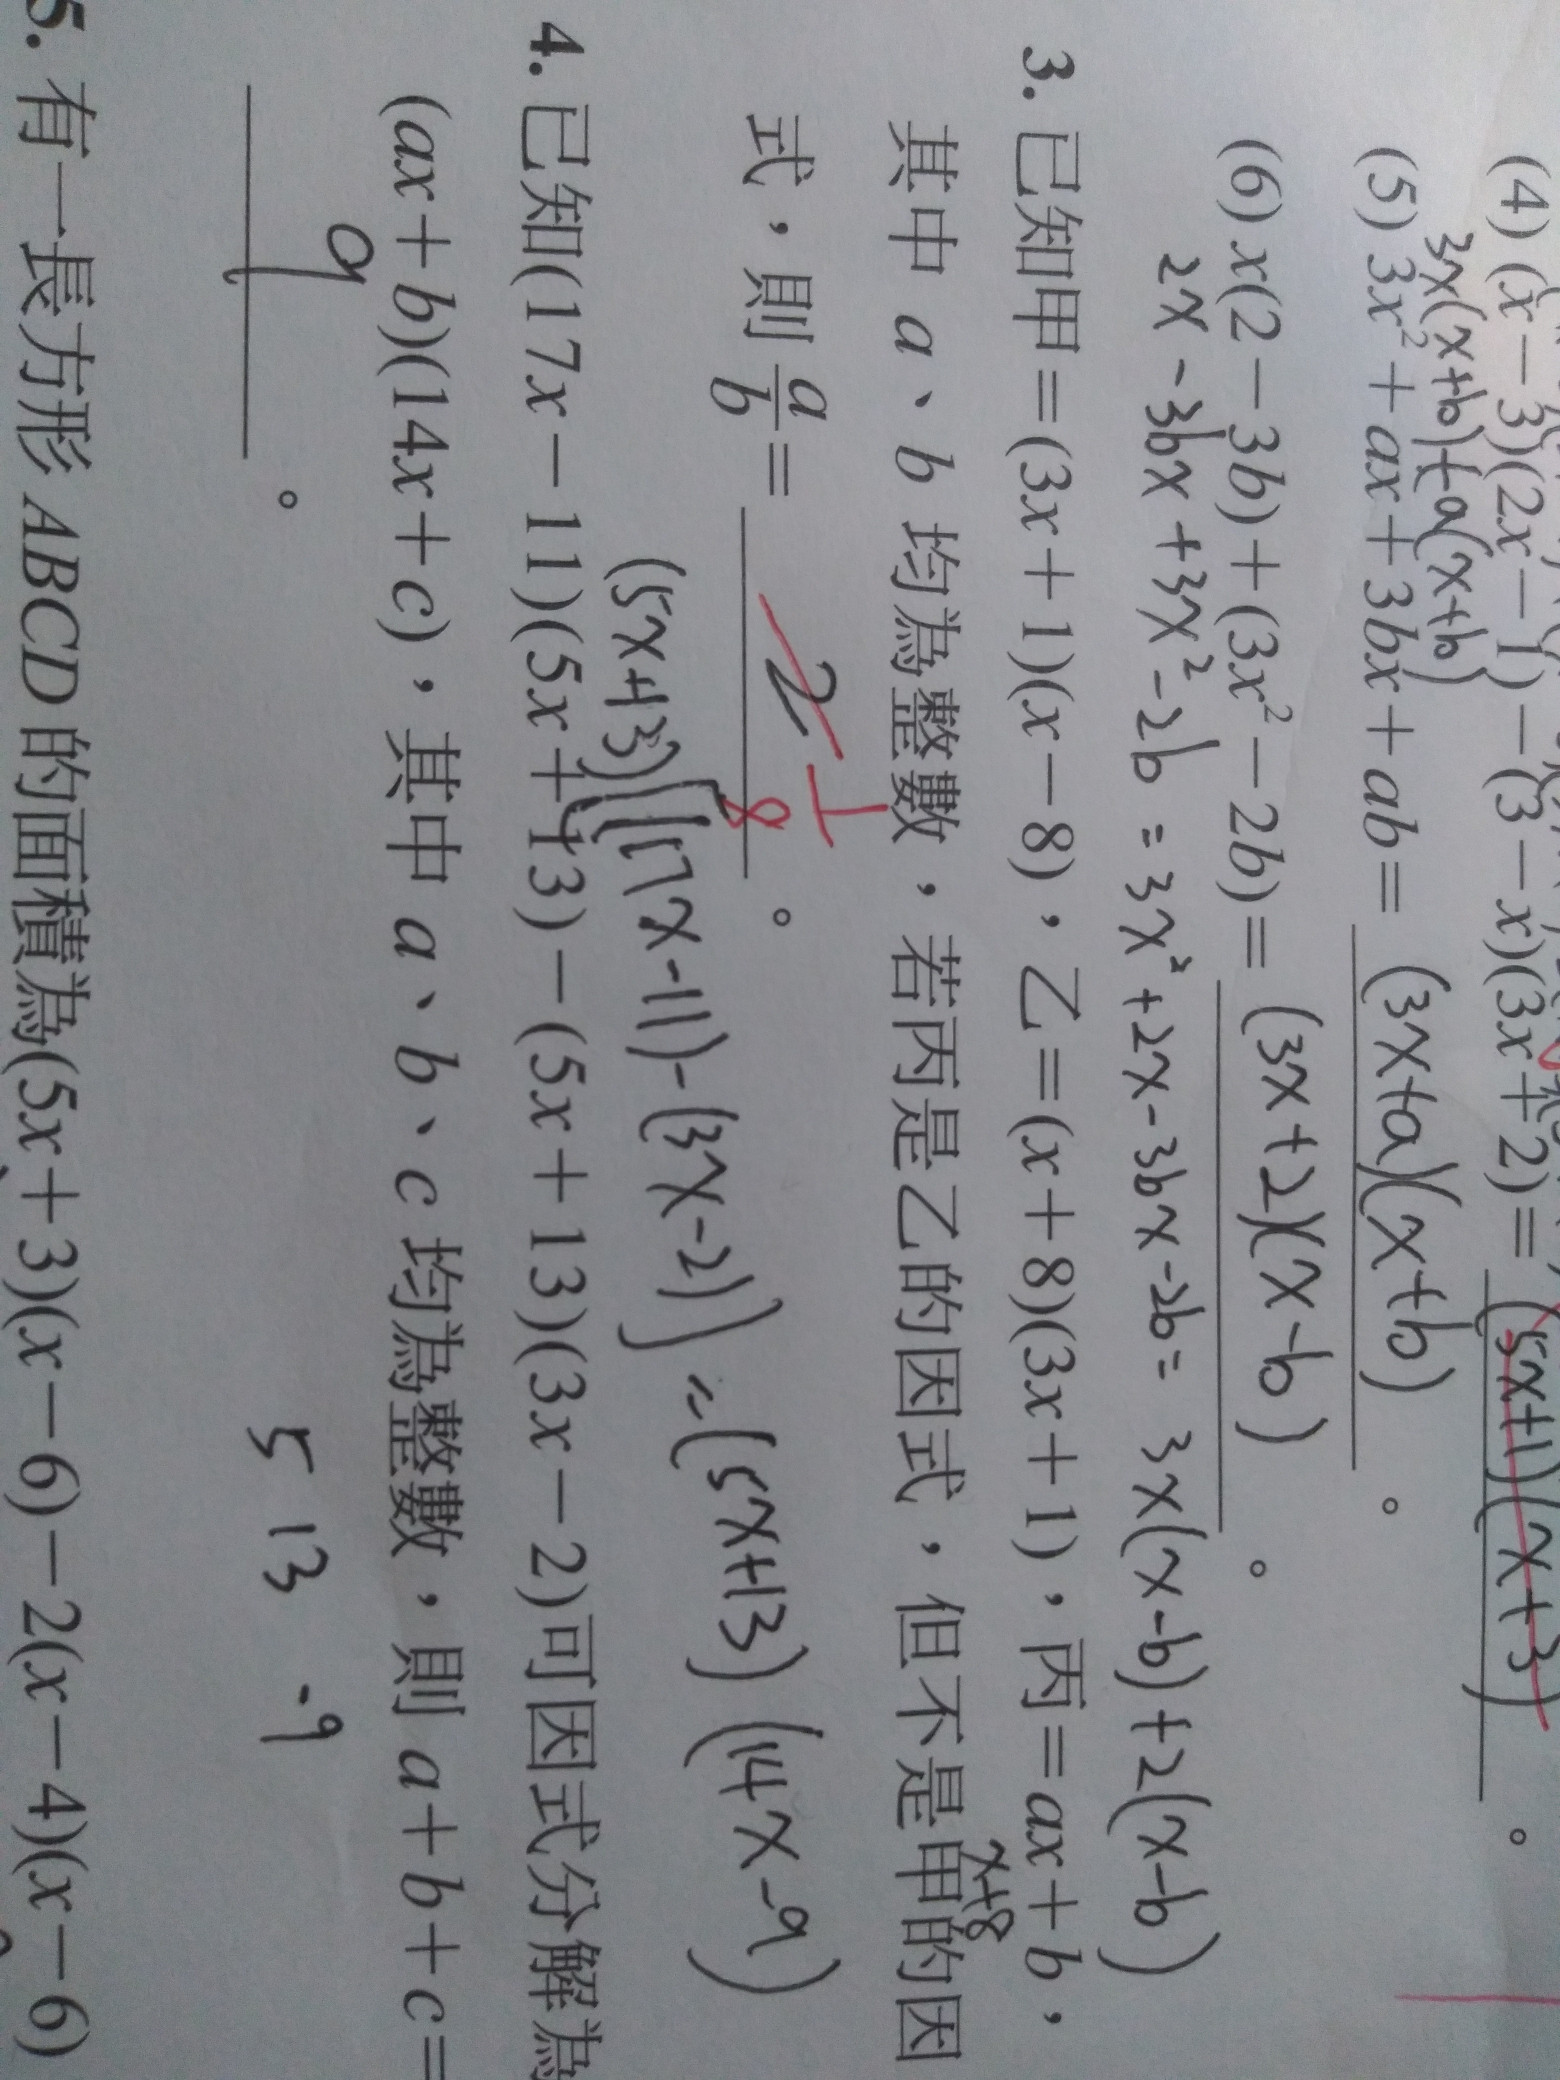 (4) (x－3)(2x－1)－(3－x)(3x＋2)＝ (5x+1)(x+3) 。
3x(x+b)+a(x+b)
(5) 3x²＋ax＋3bx＋ab＝ (3x+a)(x+b) 。
(6) x(2－3b)＋(3x²－2b)＝ (3x+2)(x-b) 。
2x-3bx+3x²-2b = 3x²+2x-3bx-2b = 3x(x-b)+2(x-b)
3. 已知甲＝(3x＋1)(x－8)，乙＝(x＋8)(3x＋1)，丙＝ax＋b，
x+8
其中 a、b 均為整數，若丙是乙的因式，但不是甲的因
式，則 a/b＝ 2 1/8 。
(5x+13)[(17x-11)-(3x-2)] = (5x+13)(14x-9)
4. 已知(17x－11)(5x＋13)－(5x＋13)(3x－2)可因式分解為
(ax＋b)(14x＋c)，其中 a、b、c 均為整數，則 a＋b＋c＝
9 。
5 13 -9
5. 有一長方形 ABCD 的面積為(5x＋3)(x－6)－2(x－4)(x－6)